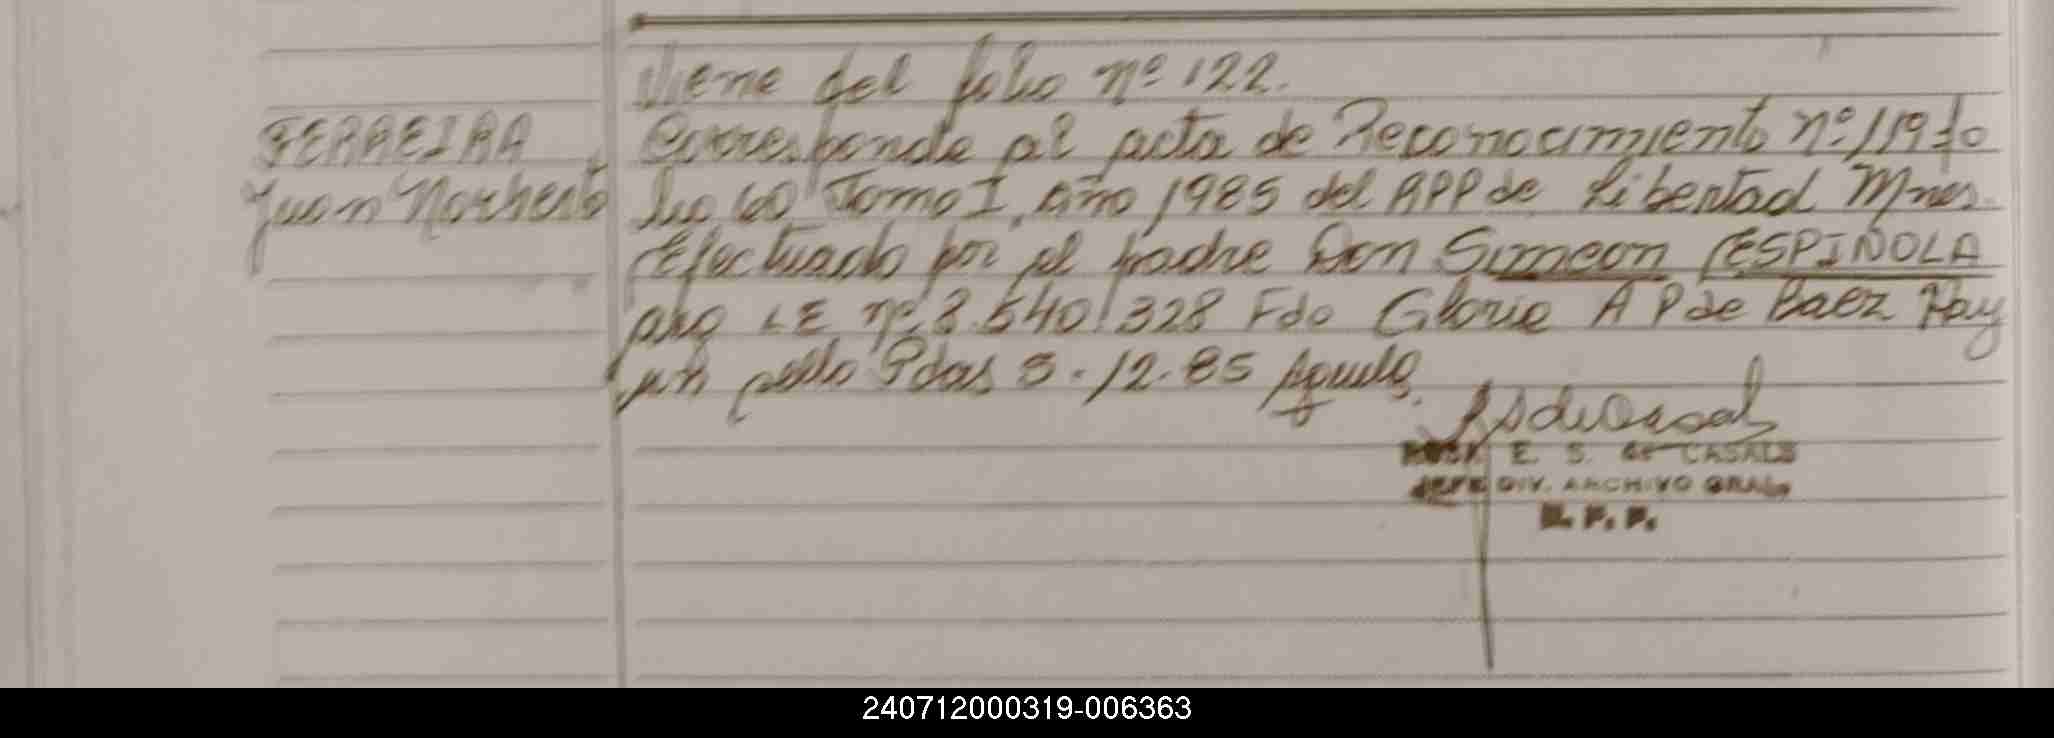 Viene del folio nº 122.
FERREIRA Corresponde al acta de Reconocimiento nº 119 fo
Juan Norberto lio 60 Tomo I, Año 1985 del APP de Libertad Mnes.
Efectuado por el padre Don Simeon ESPINOLA
arg LE nº 8.540.328 Fdo Gloria A P de Baez Hay
un sello Pdas 3-12-85
ROSA E. S. de CASALS
JEFE DIV. ARCHIVO GRAL.
R. P. P.
240712000319-006363